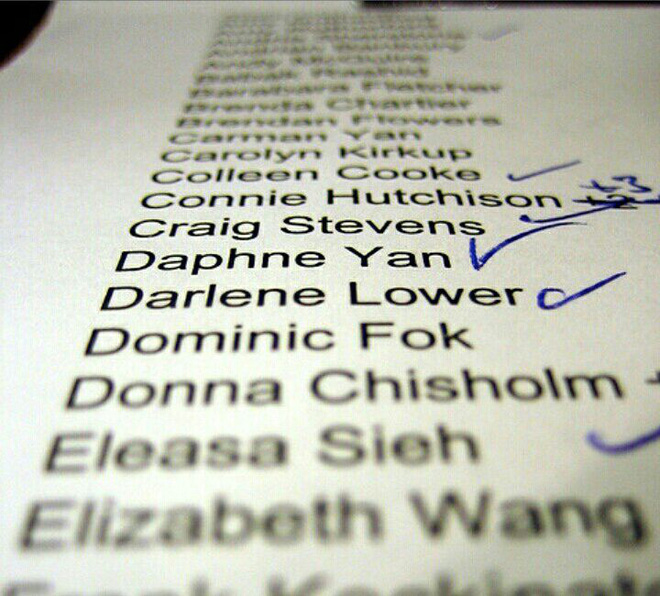 Barabara Fletcher
Brenda Chartier
Brendan Flowers
Carman Yan
Carolyn Kirkup
Colleen Cooke
Connie Hutchison +2 +3
Craig Stevens
Daphne Yan
Darlene Lower
Dominic Fok
Donna Chisholm
Eleasa Sieh
Elizabeth Wang